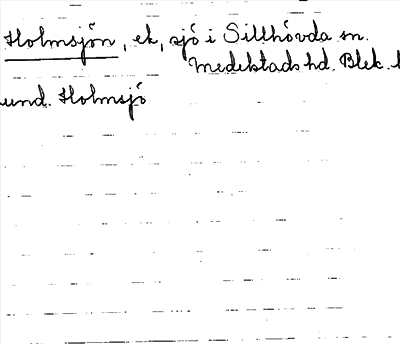 Holmsjön, ek, sjö i Sillhövda sn.
Medelstads hd. Blek. l
und. Holmsjö